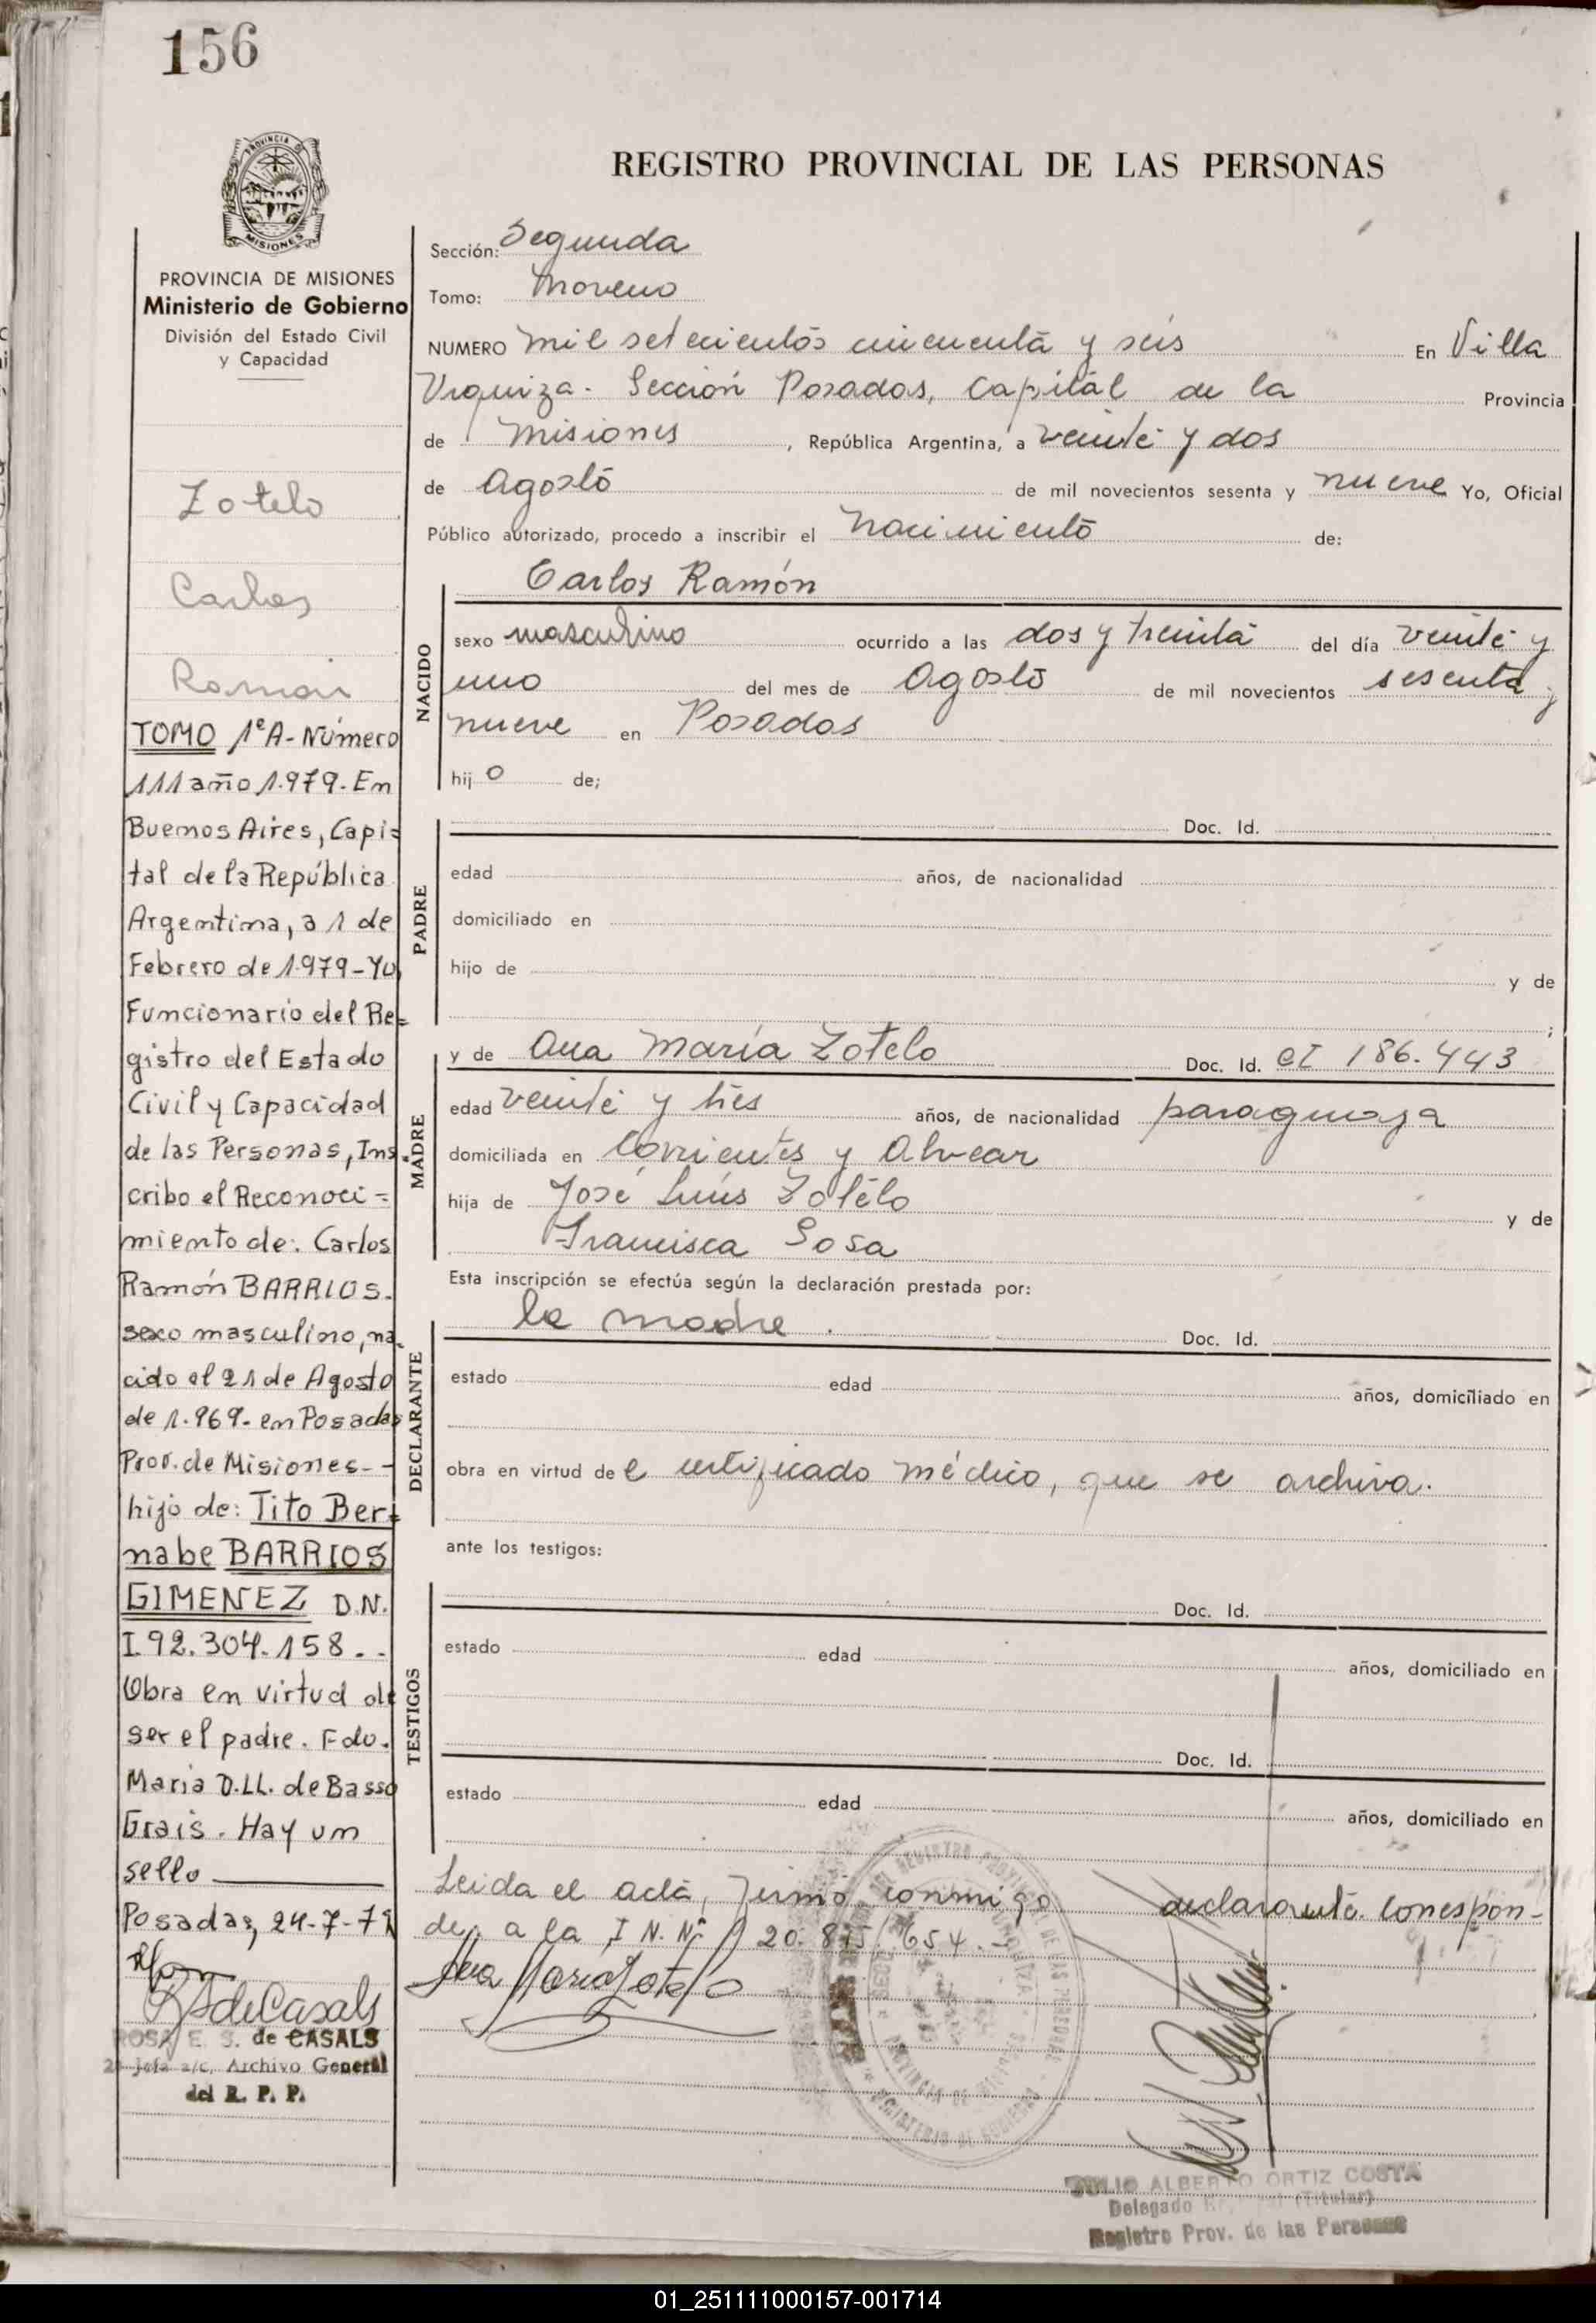 156
PROVINCIA DE
MISIONES
REGISTRO PROVINCIAL DE LAS PERSONAS
PROVINCIA DE MISIONES
Ministerio de Gobierno
División del Estado Civil
y Capacidad
Zotelo
Carlos
Ramón
TOMO 1ºA-Número
111 año 1.979.-En
Buenos Aires, Capi=
tal de la República
Argentina, a 1 de
Febrero de 1.979-Yo,
Funcionario del Re=
gistro del Estado
Civil y Capacidad
de las Personas, Ins.
cribo el Reconoci=
miento de: Carlos
Ramón BARRIOS.
sexo masculino, na.
cido el 21 de Agosto
de 1.969.-en Posadas
Prov. de Misiones.--
hijo de: Tito Ber=
nabe BARRIOS
GIMENEZ D.N.
I.92.304.158.-
Obra en virtud de
ser el padre. Fdo.
Maria D.LL. de Basso
Grais. Hay un
sello
Posadas, 24-7-79
ROSA E. S. de CASALS
2ª Jefa a/c, Archivo General
del R. P. P.
Sección: Segunda
Tomo: Moreno
NUMERO mil setecientos cincuenta y seis En Villa
Urquiza - Sección Posadas, Capital de la Provincia
de Misiones, República Argentina, a veinte y dos
de Agosto de mil novecientos sesenta y nueve Yo, Oficial
Público autorizado, procedo a inscribir el Nacimiento de:
Carlos Ramón
NACIDO
sexo masculino ocurrido a las dos y treinta del día veinte y
uno del mes de Agosto de mil novecientos sesenta y
nueve en Posadas
hijo de;
PADRE
Doc. Id.
edad años, de nacionalidad
domiciliado en
hijo de y de
;
MADRE
y de Ana María Zotelo Doc. Id. CI 186.443
edad veinte y tres años, de nacionalidad paraguaya
domiciliada en Corrientes y Alvear
hija de José Luís Zotelo y de
Francisca Sosa
Esta inscripción se efectúa según la declaración prestada por:
DECLARANTE
la madre. Doc. Id.
estado edad años, domiciliado en
obra en virtud del certificado médico, que se archiva.
ante los testigos:
TESTIGOS
Doc. Id.
estado edad años, domiciliado en
Doc. Id.
estado edad años, domiciliado en
Leida el acta, firmó conmigo declarante. Correspon-
de a la I N. Nº 20.875.654.-
Ana Maria Zotelo
JULIO ALBERTO ORTIZ COSTA
Delegado (Titular)
Registro Prov. de las Personas
01_251111000157-001714